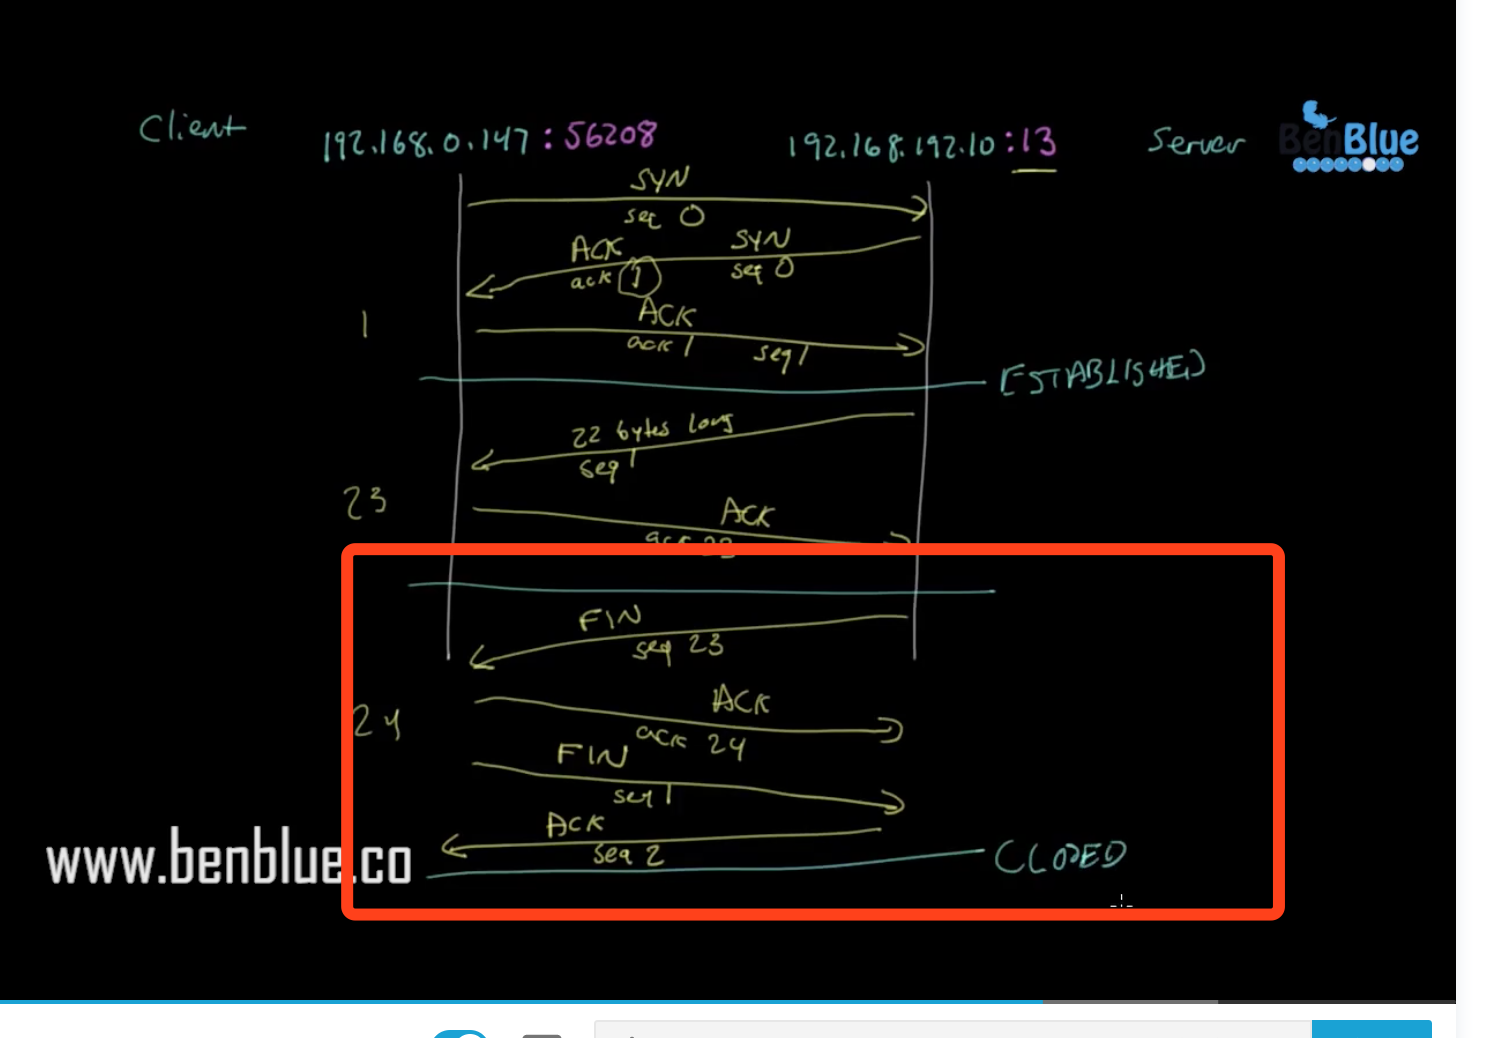 Client 192.168.0.147:56208 192.168.192.10:13 Server BenBlue
SYN
seq 0
ACK SYN
ack 1 seq 0
ACK
1
ack 1 seq 1
ESTABLISHED
22 bytes long
seq 1
23
ACK
ack 23
FIN
seq 23
ACK
24
ack 24
FIN
seq 1
ACK
seq 2
CLOSED
www.benblue.co